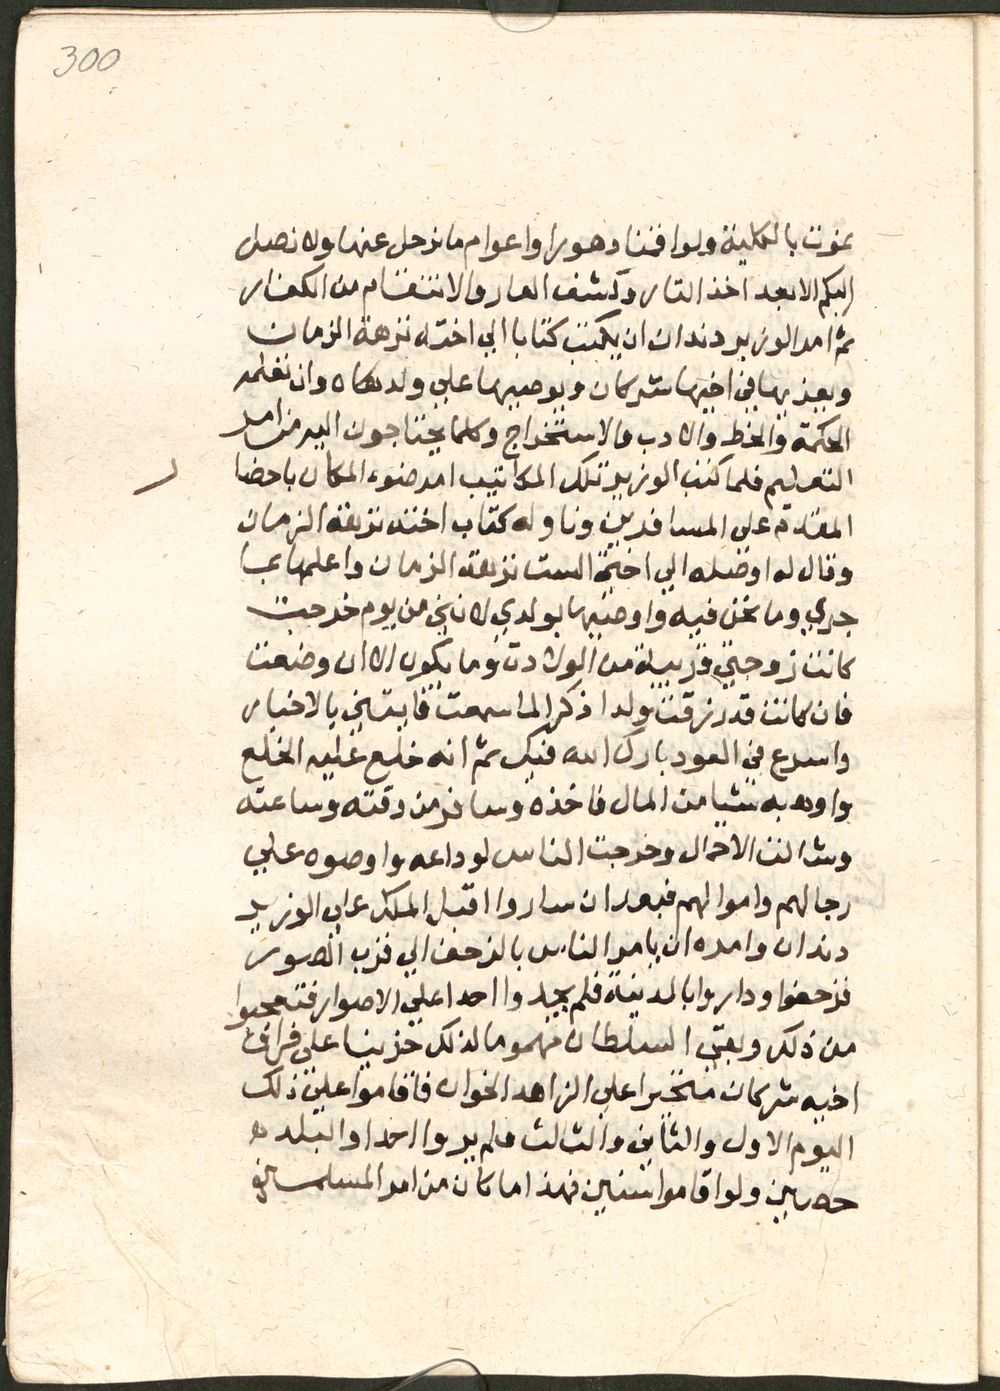 300
نموت بالكلية ولو اقمنا دهورا واعوام ما نرحل عنها ولا نصل
اليكم الا بعد اخذ التار وكشف العار والانتقام من الكفار
ثم امر الوزير دندان ان يكتب كتابا الي اخته نزهة الزمان
ويعزيها في اخيها شركان ويوصيها علي ولده كان وان تعلمه
الحكمة والخط والادب والاستخراج وكلما يحتاجون اليه من امر
التعليم فلما كتب الوزير تلك المكاتيب امر ضوء المكان باحضا
ر
المقدم علي المسافرين وناوله كتاب اخته نزهة الزمان
وقال له اوصله الي اختي الست نزهة الزمان واعلمها بما
جري وما نحن فيه واوصيها بولدي لانني من يوم خرجت
كانت زوجتي قريبة من الولادت وما يكون الا ان وضعت
فان كانت قد رزقت بولدا ذكرا لما سمعت فاتيني بالاخبار
واسرع في العود بارك الله فيك ثم انه خلع عليه الخلع
واوهبه شيا من المال فاخذه وسافر من وقته وساعته
وشالت الاحمال وخرجت الناس لوداعه واوصوه علي
رجالهم واموالهم فبعد ان ساروا اقبل الملك علي الوزير
دندان وامره ان يامر الناس بالزحف الي قرب الصور
فزحفوا وداروا بالمدينة فلم يجدوا احدا علي الاصوار فتعجبوا
من ذلك وبقي السلطان مهموما لذلك حزينا علي فراق
اخيه شركان متحيرا علي الزاهد الخوان فاقاموا علي ذلك
اليوم الاول والثاني والثالث فلم يروا احدا والبلد
حصين ولو اقاموا سنين فهذا ما كان من امر المسلمين